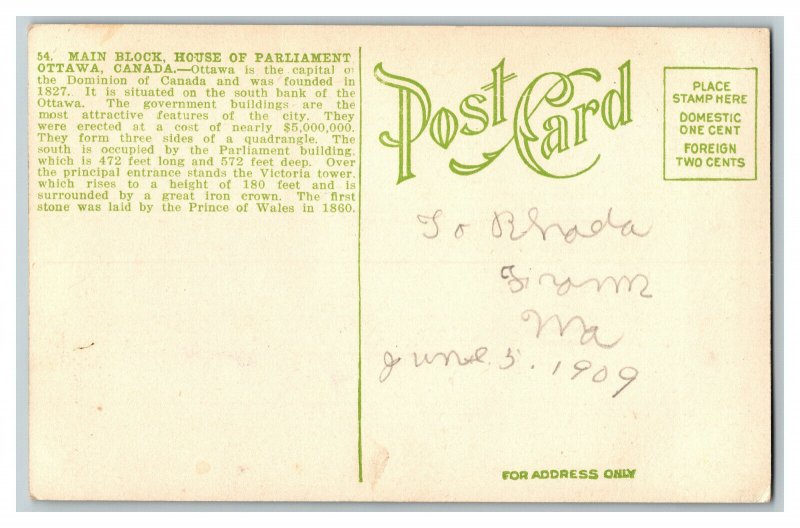 54. MAIN BLOCK, HOUSE OF PARLIAMENT
OTTAWA, CANADA.—Ottawa is the capital o
the Dominion of Canada and was founded in
1827. It is situated on the south bank of the
Ottawa. The government buildings are the
most attractive features of the city. They
were erected at a cost of nearly $5,000,000.
They form three sides of a quadrangle. The
south is occupied by the Parliament building,
which is 472 feet long and 572 feet deep. Over
the principal entrance stands the Victoria tower,
which rises to a height of 180 feet and is
surrounded by a great iron crown. The first
stone was laid by the Prince of Wales in 1860.
Post Card
PLACE
STAMP HERE
DOMESTIC
ONE CENT
FOREIGN
TWO CENTS
To Rhoda
From
Ma
June 5. 1909
FOR ADDRESS ONLY